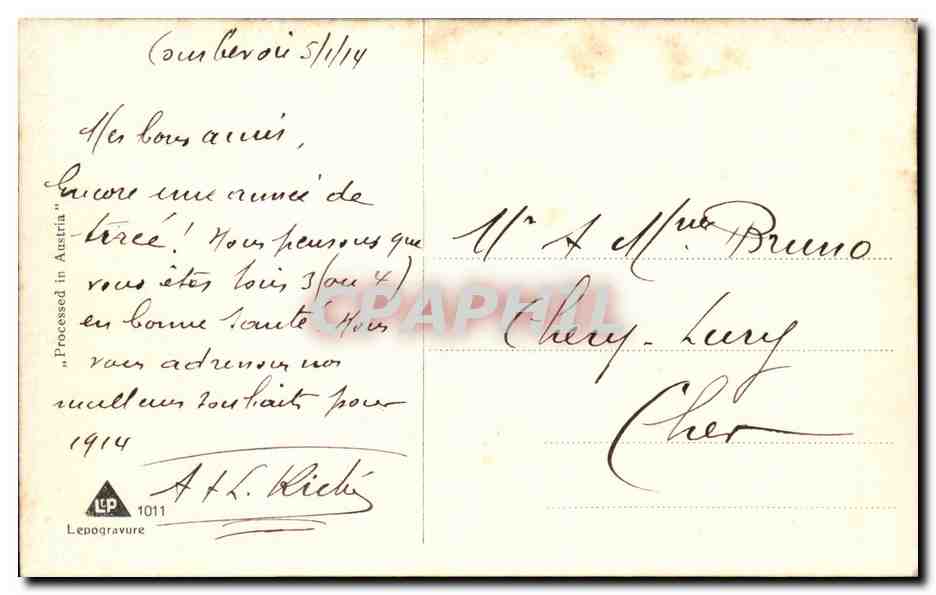 Courbevoie 5/1/14
Mes bons amis,
Encore une année de
tirée! Nous pensons que
vous êtes tous 3 (ou 4)
en bonne santé. Nous
vous adressons nos
meilleurs souhaits pour
1914
A & L. Riché
„Processed in Austria"
LEP
1011
Lepogravure
CPAPHIL
Mr & Mme Bruno
Chery-Lury
Cher